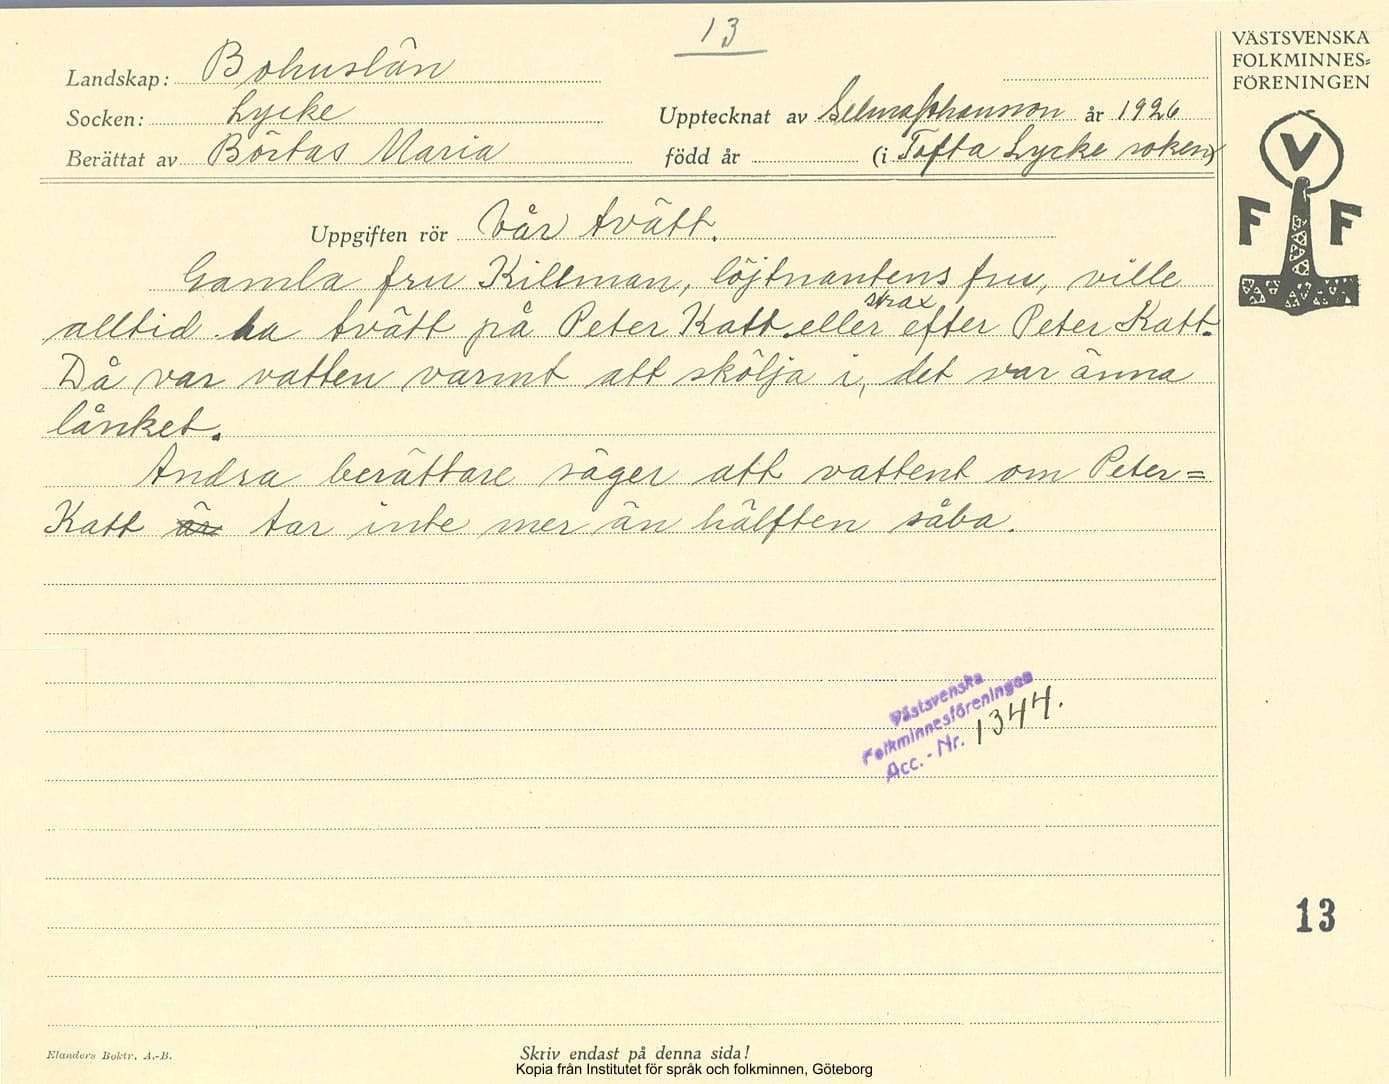 13
VÄSTSVENSKA
FOLKMINNES=
FÖRENINGEN
V
F F
Landskap: Bohuslän
Socken: Lycke
Upptecknat av Selma Johansson år 1926
Berättat av Börtas Maria
född år (i Tofta Lycke soken)
Uppgiften rör Vår tvätt.
Gamla fru Killman, löjtnantens fru, ville
alltid ha tvätt på Peter Katt eller strax efter Peter Katt.
Då var vatten varmt att skölja i, det var änna
lånket.
Andra berättare säger att vattent om Peter=
Katt är tar inte mer än hälften såba.
Västsvenska
Folkminnesföreningen
Acc.-Nr. 1344.
13
Elanders Boktr. A.-B.
Skriv endast på denna sida!
Kopia från Institutet för språk och folkminnen, Göteborg